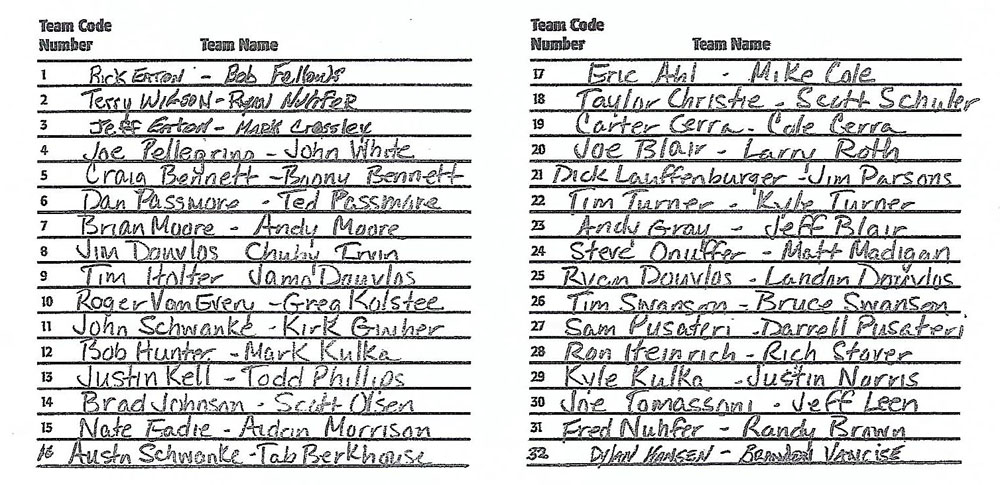 Team Code
Number Team Name
1 Rick Eaton - Bob Fallows
2 Terry Wilson - Ryan Nuhfer
3 Jeff Eaton - Mark Crossley
4 Joe Pellegrino - John White
5 Craig Bennett - Bennett
6 Dan Passmore - Ted Passmore
7 Brian Moore - Andy Moore
8 Jim Douvlos Chuby Ervin
9 Tim Holter Douvlos
10 Roger VanEvery - Greg Kolstee
11 John Schwanke - Kirk
12 Bob Hunter - Mark Kulka
13 Justin Kell - Todd Phillips
14 Brad Johnson - Scott Olsen
15 Nate Eadie - Aidan Morrison
16 Austn Schwanke - Tab Berkhouse
Team Code
Number Team Name
17 Eric Ahl - Mike Cole
18 Taylor Christie - Scott Schuler
19 Carter Cerra - Cole Cerra
20 Joe Blair - Larry Roth
21 Dick Lauffenburger - Jim Parsons
22 Tim Turner - Kyle Turner
23 Andy Gray - Jeff Blair
24 Steve Onuffer - Matt Madigan
25 Ryan Douvlos - Landon Douvlos
26 Tim Swanson - Bruce Swanson
27 Sam Pusateri - Darrell Pusateri
28 Ron Heinrich - Rich Stover
29 Kyle Kulka - Justin Norris
30 Joe Tomassoni - Jeff Leen
31 Fred Nuhfer - Randy Brown
32 Dylan Hansen - Branden Vancise